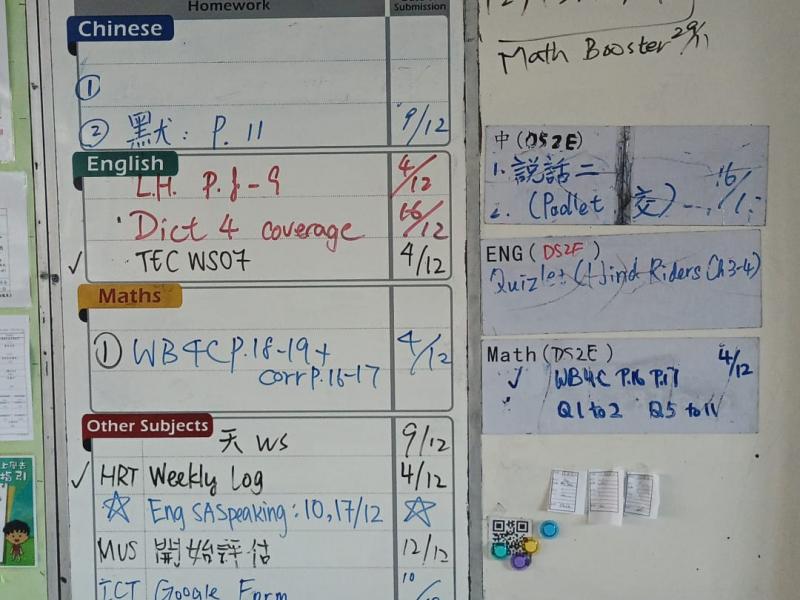 Homework
Submission
Chinese
①
② 默犬: P. 11 9/12
English
L.H. P. 8-9 4/12
Dict 4 coverage 16/12
✓ TEC WS07 4/12
Maths
① WB4C P.18-19+ 4/12
corr P.16-17
Other Subjects
天 WS 9/12
✓ HRT Weekly Log 4/12
☆ Eng SA Speaking: 10, 17/12 ☆
MUS 開始評估 12/12
ICT Google Form 10
Math Booster 29/11
中(DS2E)
1. 説話二 16/1
2. (Padlet 交)
ENG (DS2E)
Quizlet (Wind Riders Ch3-4)
Math (DS2E) 4/12
✓ WB4C P.16 P.17
Q1 to 2 Q5 to 11
指引